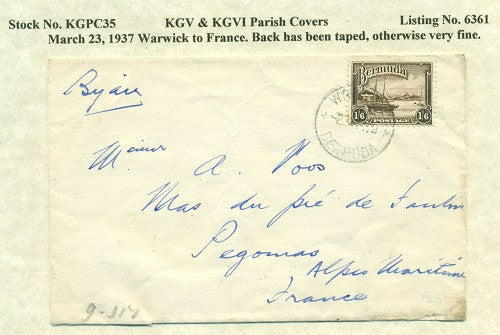 Stock No. KGPC35 KGV & KGVI Parish Covers Listing No. 6361
March 23, 1937 Warwick to France. Back has been taped, otherwise very fine.
Bermuda
1/6 POSTAGE 1/6
BERMUDA
A. Voos
Mas du pié de
Pegomas
Alpes Maritime
France